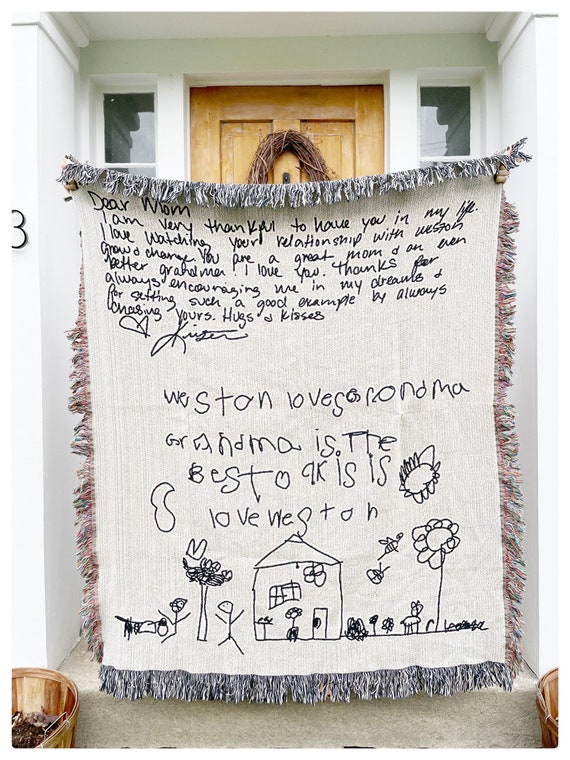 Dear Mom
I am very thankful to have you in my life.
I love watching your relationship with weston
grow & change. You are a great mom & an even
better grandma! I love you. Thanks for
always encouraging me in my dreams &
for setting such a good example by always
chasing yours. Hugs & Kisses
weston loves grandma
Grandma is The
Best
love weston
3